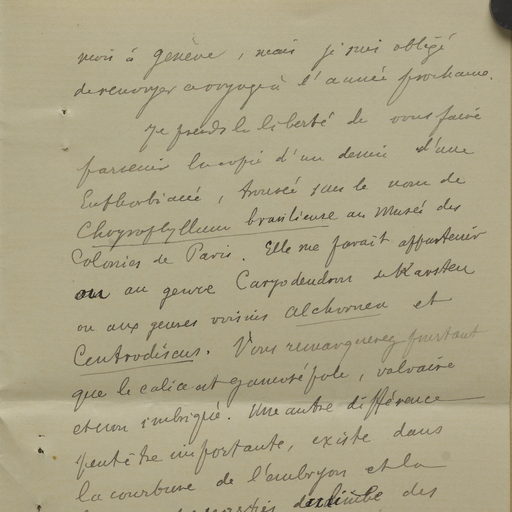 mois à Genève, mais je suis obligé
de renvoyer ce voyage à l'année prochaine.
Je prends la liberté de vous faire
parvenir la copie d'un dessin d'une
Euphorbiacée, trouvée sous le nom de
Choyrophyllum brasiliense au Musée des
Colonies de Paris. Elle me parait appartenir
ou au genre Caryodendron de Karsten
ou aux genres voisins Alchornea et
Centrodiscus. Vous remarquerez pourtant
que le calice est gamosépale, valvaire
et non imbriqué. Une autre différence
peut être importante, existe dans
la courbure de l'embryon et la
des